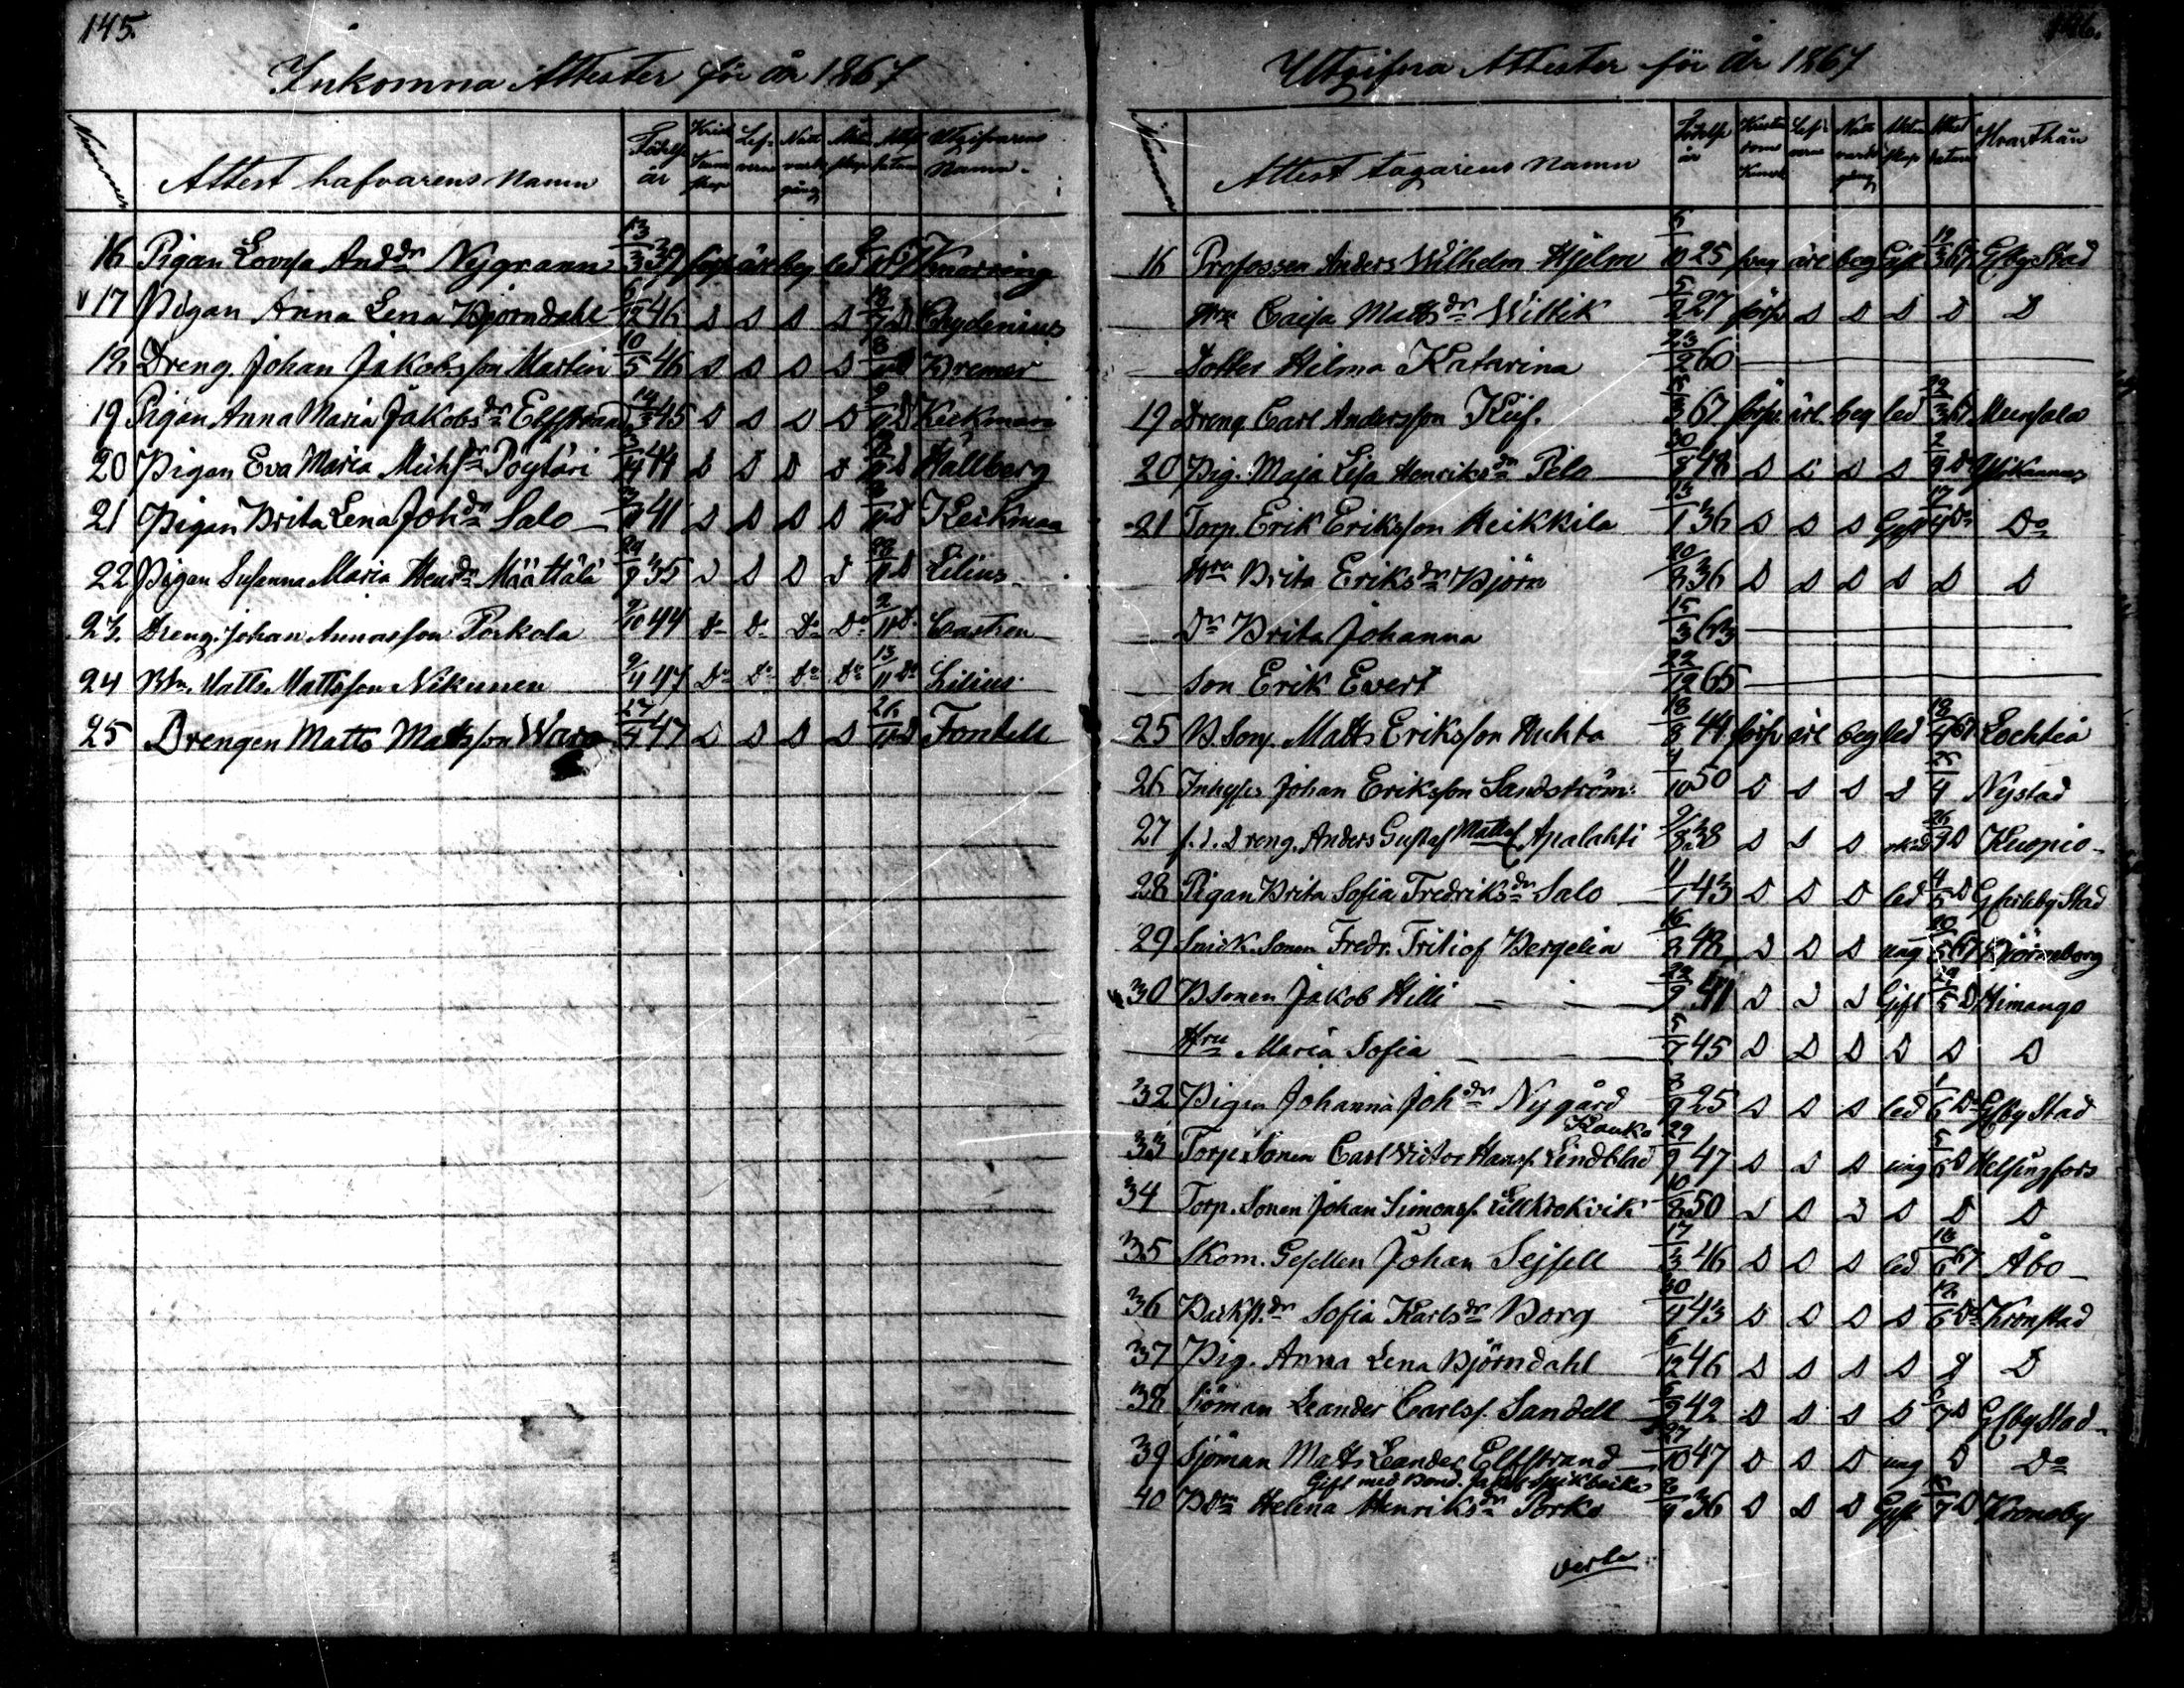 145.
Inkomna Attester för år 1867
Nummer Attest hafvarens Namn Födelse år Krist. kunnskap Lefverne Nattvardsgång Äktenskap Attest datum Utgifvarens Namn
16 Pigan Lovisa And:dr Nygrann 13/3 39 förs. ärl beg led 67 Snarving
17 Pigan Anna Lena Björndahl 6/12 46 D D D D D Chydenius
18 Dreng Johan Jakobsson Martin 10/5 46 D D D D D Bremer
19 Pigan Anna Maria Jakobsdr Elfstrand 14/3 45 D D D D 9/11 D Keckman
20 Pigan Eva Maria Michsdr Pöytäri 44 D D D D D Hällberg
21 Pigan Brita Lena Johdr Salo 41 D D D D D Keckman
22 Pigan Susanna Maria Hendr Määttälä 29/9 35 D D D D 28/11 D Lilius
23. Dreng. Johan Annasson Porkola 9/10 44 Do Do Do Do 2/11 D. Castren
24 Bn. Matts Mattsson Nikunen 9/4 47 Do Do Do Do 13/11 Do Lilius
25 Drengen Matts Mattsson Wara 27/4 47 D D D D 26/11 D Fontell
146.
Utgifna Attester för år 1867
Nummer Attest tagarens Namn Födelse år Kristendoms Kunsk. Lefverne Nattvardsgång Äktenskap Attest datum Hvarthän
16 Profossen Anders Wilhelm Hjelm 6/10 25 svag ärl beg Gift 19/3 67 Glby Stad
Hru Caisa Mattsdr Wittik 5/2 27 förs. D D D D D
Dotter Hilma Katarina 23/2 60
19 Dreng Carl Andersson Kuf. 67 förs. ärl. beg led 22/3 67 Munsala
20 Pig. Maja Lisa Henriksdr Pelo 30/8 48 D D D D 2/
21 Torp. Erik Eriksson Heikkila 13/1 36 D D D Gift 17/4 Do Do
Hru Brita Eriksdr Björn 20/8 36 D D D D D D
Dr Brita Johanna 15/3 63
Son Erik Evert 22/12 65
25 B. Son. Matts Eriksson Huhta 18/8 44 förs ärl beg led 18/4 67 Lochteå
26 Inhyses Johan Eriksson Sandström 4/10 50 D D D D 25/4 Nystad
27 f.d. Dreng. Anders Gustaf Mattss. Apalahti 9/8 38 D D D 26/4 D Kuopio
28 Pigan Brita Sofia Fredriksdr Salo 11/1 43 D D D led 4/5 D Gkarleby Stad
29 Snick. Sonen Fredr. Tritiof Bergelin 16/8 48 D D D ung 20/5 67 Björneborg
30 B Sonen Jakob Hilli 22/9 41 D D D Gift 29/5 D Himango
Hru Maria Sofia 5/7 45 D D D D D D
32 Pigan Johanna Johdr Nygård 8/9 25 D D D led 1/6 Do Glby Stad
33 Torp. Sonen Carl Victor Hanss. Kauko Lindblad 29/9 47 D D D ung 5/6 D Helsingfors
34 Torp. Sonen Johan Simonss. Lillkrokvik 10/8 50 D D D D D D
35 Skom. Gesellen Johan Sejfell 17/3 46 D D D led 18/6 67 Åbo
36 Backst.dr Sofia Karlsdr Borg 30/4 43 D D D D 12/6 Do Kronstad
37 Pig. Anna Lena Björndahl 6/12 46 D D D D D D
38 Sjöman Leander Carlss. Sandell 6/9 42 D D D D 7 D Glby Stad
39 Sjöman Matts Leander Elfstrand 27/10 47 D D D ung D Do
Gift med Bond. Jakob
40 Bdr Helena Henriksdr Torko 36 D D D Gift 7 D Kronoby
verte